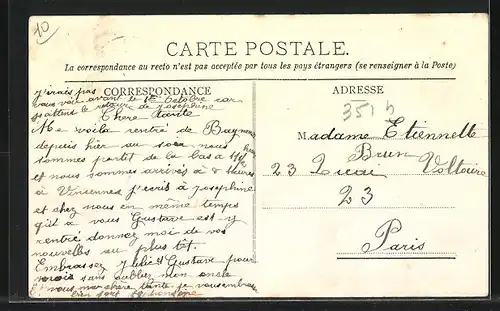 10
CARTE POSTALE.
La correspondance au recto n'est pas acceptée par tous les pays étrangers (se renseigner à la Poste)
CORRESPONDANCE
ADRESSE
j'irais pas
vous voir avant le 1er Octobre car
j'attens le retour de josephine
Chere tante
Me voila rentré de
depuis hier au soir nous
sommes partit de la bas a
et nous sommes arrivés à 8 heures
a Vincennes j'ecris à josephine
et chez nous en même temps
qu'à vous Gustave est-y
rentré donnez moi de vos
nouvelles au plus tôt.
Embrassez Gustave pour
moi sans oublier mon oncle
Et vous ma chere tante je vous embrasse
bien fort
351
Madame Etiennette
Brun
23 Voltaire
23
Paris